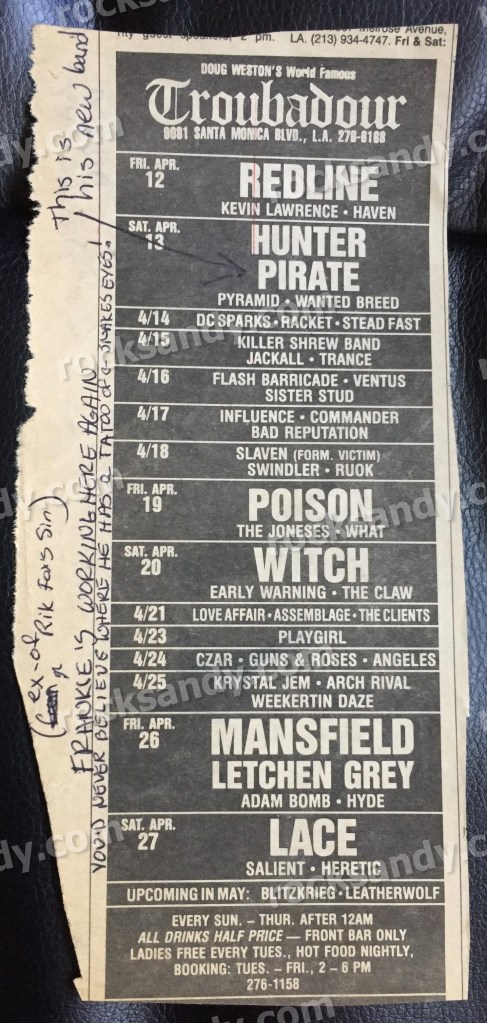 my guest speakers, 2 pm.
Melrose Avenue,
LA. (213) 934-4747. Fri & Sat:
DOUG WESTON'S World Famous
Troubadour
9081 SANTA MONICA BLVD., L.A. 276-6168
FRI. APR.
12
REDLINE
KEVIN LAWRENCE • HAVEN
SAT. APR.
13
HUNTER
PIRATE
PYRAMID • WANTED BREED
4/14 DC SPARKS • RACKET • STEAD FAST
4/15 KILLER SHREW BAND
JACKALL • TRANCE
4/16 FLASH BARRICADE • VENTUS
SISTER STUD
4/17 INFLUENCE • COMMANDER
BAD REPUTATION
4/18 SLAVEN (FORM. VICTIM)
SWINDLER • RUOK
FRI. APR.
19
POISON
THE JONESES • WHAT
SAT. APR.
20
WITCH
EARLY WARNING • THE CLAW
4/21 LOVE AFFAIR • ASSEMBLAGE • THE CLIENTS
4/23 PLAYGIRL
4/24 CZAR • GUNS & ROSES • ANGELES
4/25 KRYSTAL JEM • ARCH RIVAL
WEEKERTIN DAZE
FRI. APR.
26
MANSFIELD
LETCHEN GREY
ADAM BOMB • HYDE
SAT. APR.
27
LACE
SALIENT • HERETIC
UPCOMING IN MAY: BLITZKRIEG • LEATHERWOLF
EVERY SUN. – THUR. AFTER 12AM
ALL DRINKS HALF PRICE — FRONT BAR ONLY
LADIES FREE EVERY TUES., HOT FOOD NIGHTLY,
BOOKING: TUES. – FRI., 2 – 6 PM
276-1158
This is
his new band
(ex-of
Rik Foxs Sin)
FRANKIE'S WORKING HERE AGAIN
YOU'D NEVER BELIEVE WHERE HE HAS A TATOO of a SNAKES EYES!
rocksandy.com